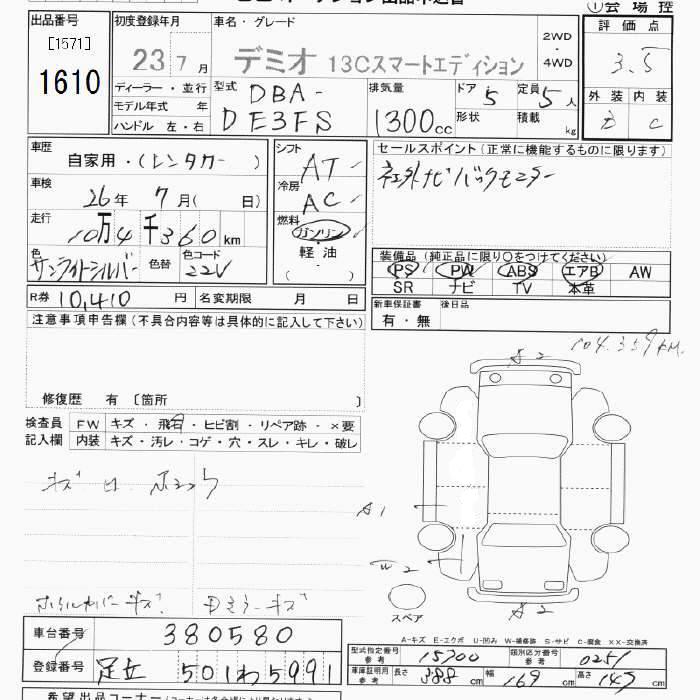 ①会場控
出品番号 初度登録年月 車名・グレード 評価点
[1571] 2WD
1610 23年 7月 デミオ 13Cスマートエディション ・ 3.5
4WD
ディーラー・並行 型式 DBA- 排気量 ドア 5 定員 5人 外装 内装
モデル年式 年 DE3FS 1300cc 形状 積載 kg D C
ハンドル 左・右
車歴 シフト セールスポイント(正常に機能するものに限ります)
自家用・(レンタカー) AT
車検 26年 7月( 日) 冷房 AC
走行 10万4千360km 燃料 ガソリン
色 サンライトシルバー 色替 色コード 22V 軽油 装備品(純正品に限り○をつけてください)
( ) PS PW ABS エアB AW
SR ナビ TV 本革
R券 10,410 円 名変期限 月 日 新車保証書 後日品
有・無
注意事項申告欄(不具合内容等は具体的に記入して下さい)
104,359KM
A2
修復歴 有 〔箇所 〕
検査員 FW キズ・飛石・ヒビ割・リペア跡・×要
記入欄 内装 キズ・汚レ・コゲ・穴・スレ・キレ・破レ
A1
W2
ホイルカバーキズ
スペア A2
A-キズ E-エクボ U-凹み W-補修跡 S-サビ C-腐食 XX-交換済
車台番号 380580 型式指定番号 参考 15700 類別区分番号 参考 0251
登録番号 足立 501わ5991 車庫証明用 参考 長さ 388cm 幅 169cm 高さ 145cm
希望出品コーナー